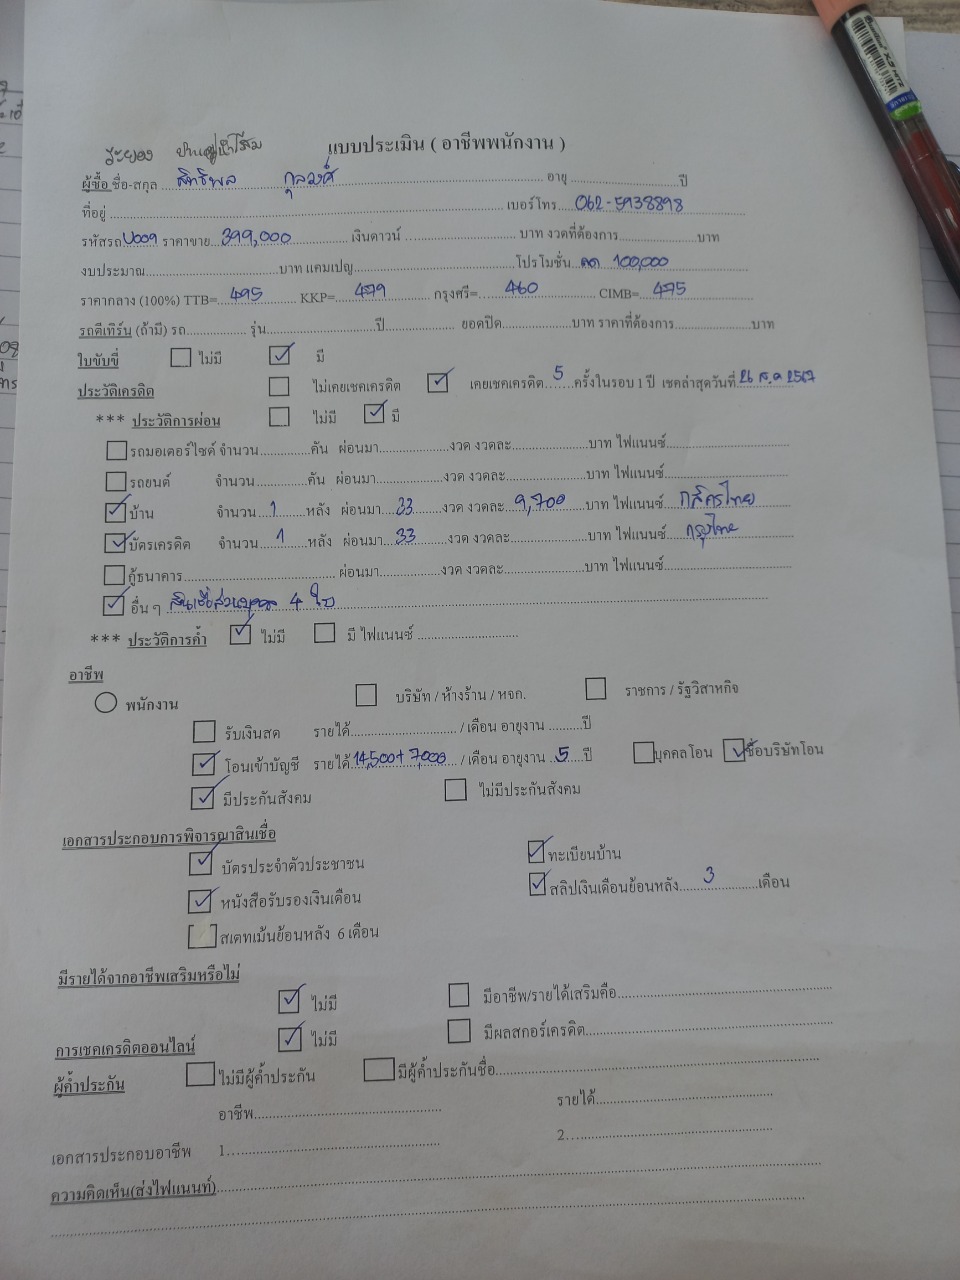 ระยอง
แบบประเมิน ( อาชีพพนักงาน )
ผู้ซื้อ ชื่อ-สกุล ... สิทธิพล กุลวงศ์ ... อายุ ... ปี
ที่อยู่ ... เบอร์โทร... 062-5938898
รหัสรถ U009 ราคาขาย... 399,000 ... เงินดาวน์ ... บาท งวดที่ต้องการ... บาท
งบประมาณ... บาท แคมเปญ... โปรโมชั่น ลด 100,000
ราคากลาง (100%) TTB= 495 KKP= 479 กรุงศรี= 460 CIMB= 475
รถตีเทิร์น (ถ้ามี) รถ... รุ่น... ปี... ยอดปิด... บาท ราคาที่ต้องการ... บาท
ใบขับขี่ ไม่มี ✓ มี
ประวัติเครดิต ไม่เคยเชคเครดิต ✓ เคยเชคเครดิต 5 ครั้งในรอบ 1 ปี เชคล่าสุดวันที่ 26 ส.ค 2567
*** ประวัติการผ่อน ไม่มี ✓ มี
รถมอเตอร์ไซค์ จำนวน... คัน ผ่อนมา... งวด งวดละ... บาท ไฟแนนซ์...
รถยนต์ จำนวน... คัน ผ่อนมา... งวด งวดละ... บาท ไฟแนนซ์...
✓ บ้าน จำนวน 1 หลัง ผ่อนมา 33 งวด งวดละ 9,700 บาท ไฟแนนซ์ กสิกรไทย
✓ บัตรเครดิต จำนวน 1 หลัง ผ่อนมา 33 งวด งวดละ... บาท ไฟแนนซ์ กรุงไทย
กู้ธนาคาร... ผ่อนมา... งวด งวดละ... บาท ไฟแนนซ์...
✓ อื่น ๆ สินเชื่อส่วนบุคคล 4 ใบ
*** ประวัติการค้ำ ✓ ไม่มี มี ไฟแนนซ์ ...
อาชีพ
พนักงาน บริษัท / ห้างร้าน / หจก. ราชการ / รัฐวิสาหกิจ
รับเงินสด รายได้... / เดือน อายุงาน ... ปี
✓ โอนเข้าบัญชี รายได้ 14,500+7,000 / เดือน อายุงาน 5 ปี บุคคลโอน ✓ ชื่อบริษัทโอน
✓ มีประกันสังคม ไม่มีประกันสังคม
เอกสารประกอบการพิจารณาสินเชื่อ
✓ บัตรประจำตัวประชาชน ✓ ทะเบียนบ้าน
✓ หนังสือรับรองเงินเดือน ✓ สลิปเงินเดือนย้อนหลัง 3 เดือน
สเตทเม้นย้อนหลัง 6 เดือน
มีรายได้จากอาชีพเสริมหรือไม่
✓ ไม่มี มีอาชีพ/รายได้เสริมคือ...
การเชคเครดิตออนไลน์ ✓ ไม่มี มีผลสกอร์เครดิต...
ผู้ค้ำประกัน ไม่มีผู้ค้ำประกัน มีผู้ค้ำประกันชื่อ...
อาชีพ... รายได้...
เอกสารประกอบอาชีพ 1... 2...
ความคิดเห็น(ส่งไฟแนนท์)...